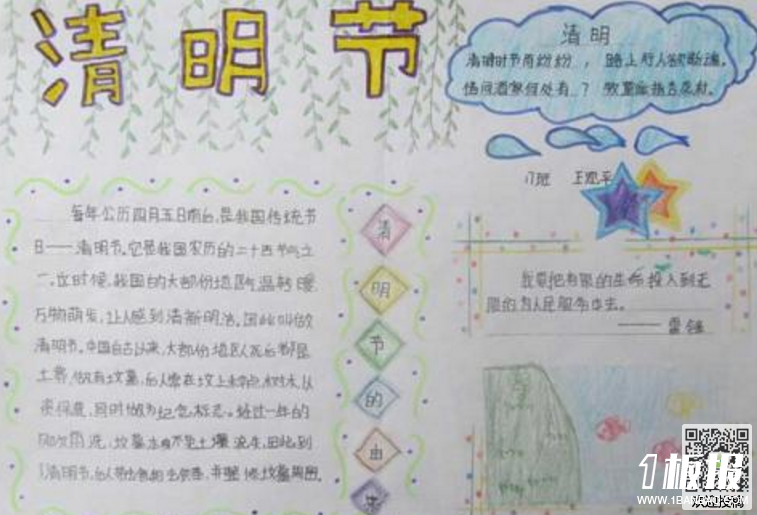 清明节
清明
清明时节雨纷纷，路上行人欲断魂。
借问酒家何处有？牧童遥指杏花村。
每年公历四月五日前后，是我国传统节
日——清明节。它是我国农历的二十四节气之
一。这时候，我国的大部份地区气温转暖
万物萌发，让人感到清新明洁。因此叫做
清明节。中国自古以来，大部份地区人死后都是
土葬，做有坟墓，
同时做为纪念标志。经过一年的
风吹雨洗，坟墓本身不免土壤流失，因此到
了清明节，
清
明
节
的
由
来
我要把有限的生命，投入到无
限的为人民服务中去。
——雷锋
1板报
WWW.1BANBAO.COM
欢迎投稿